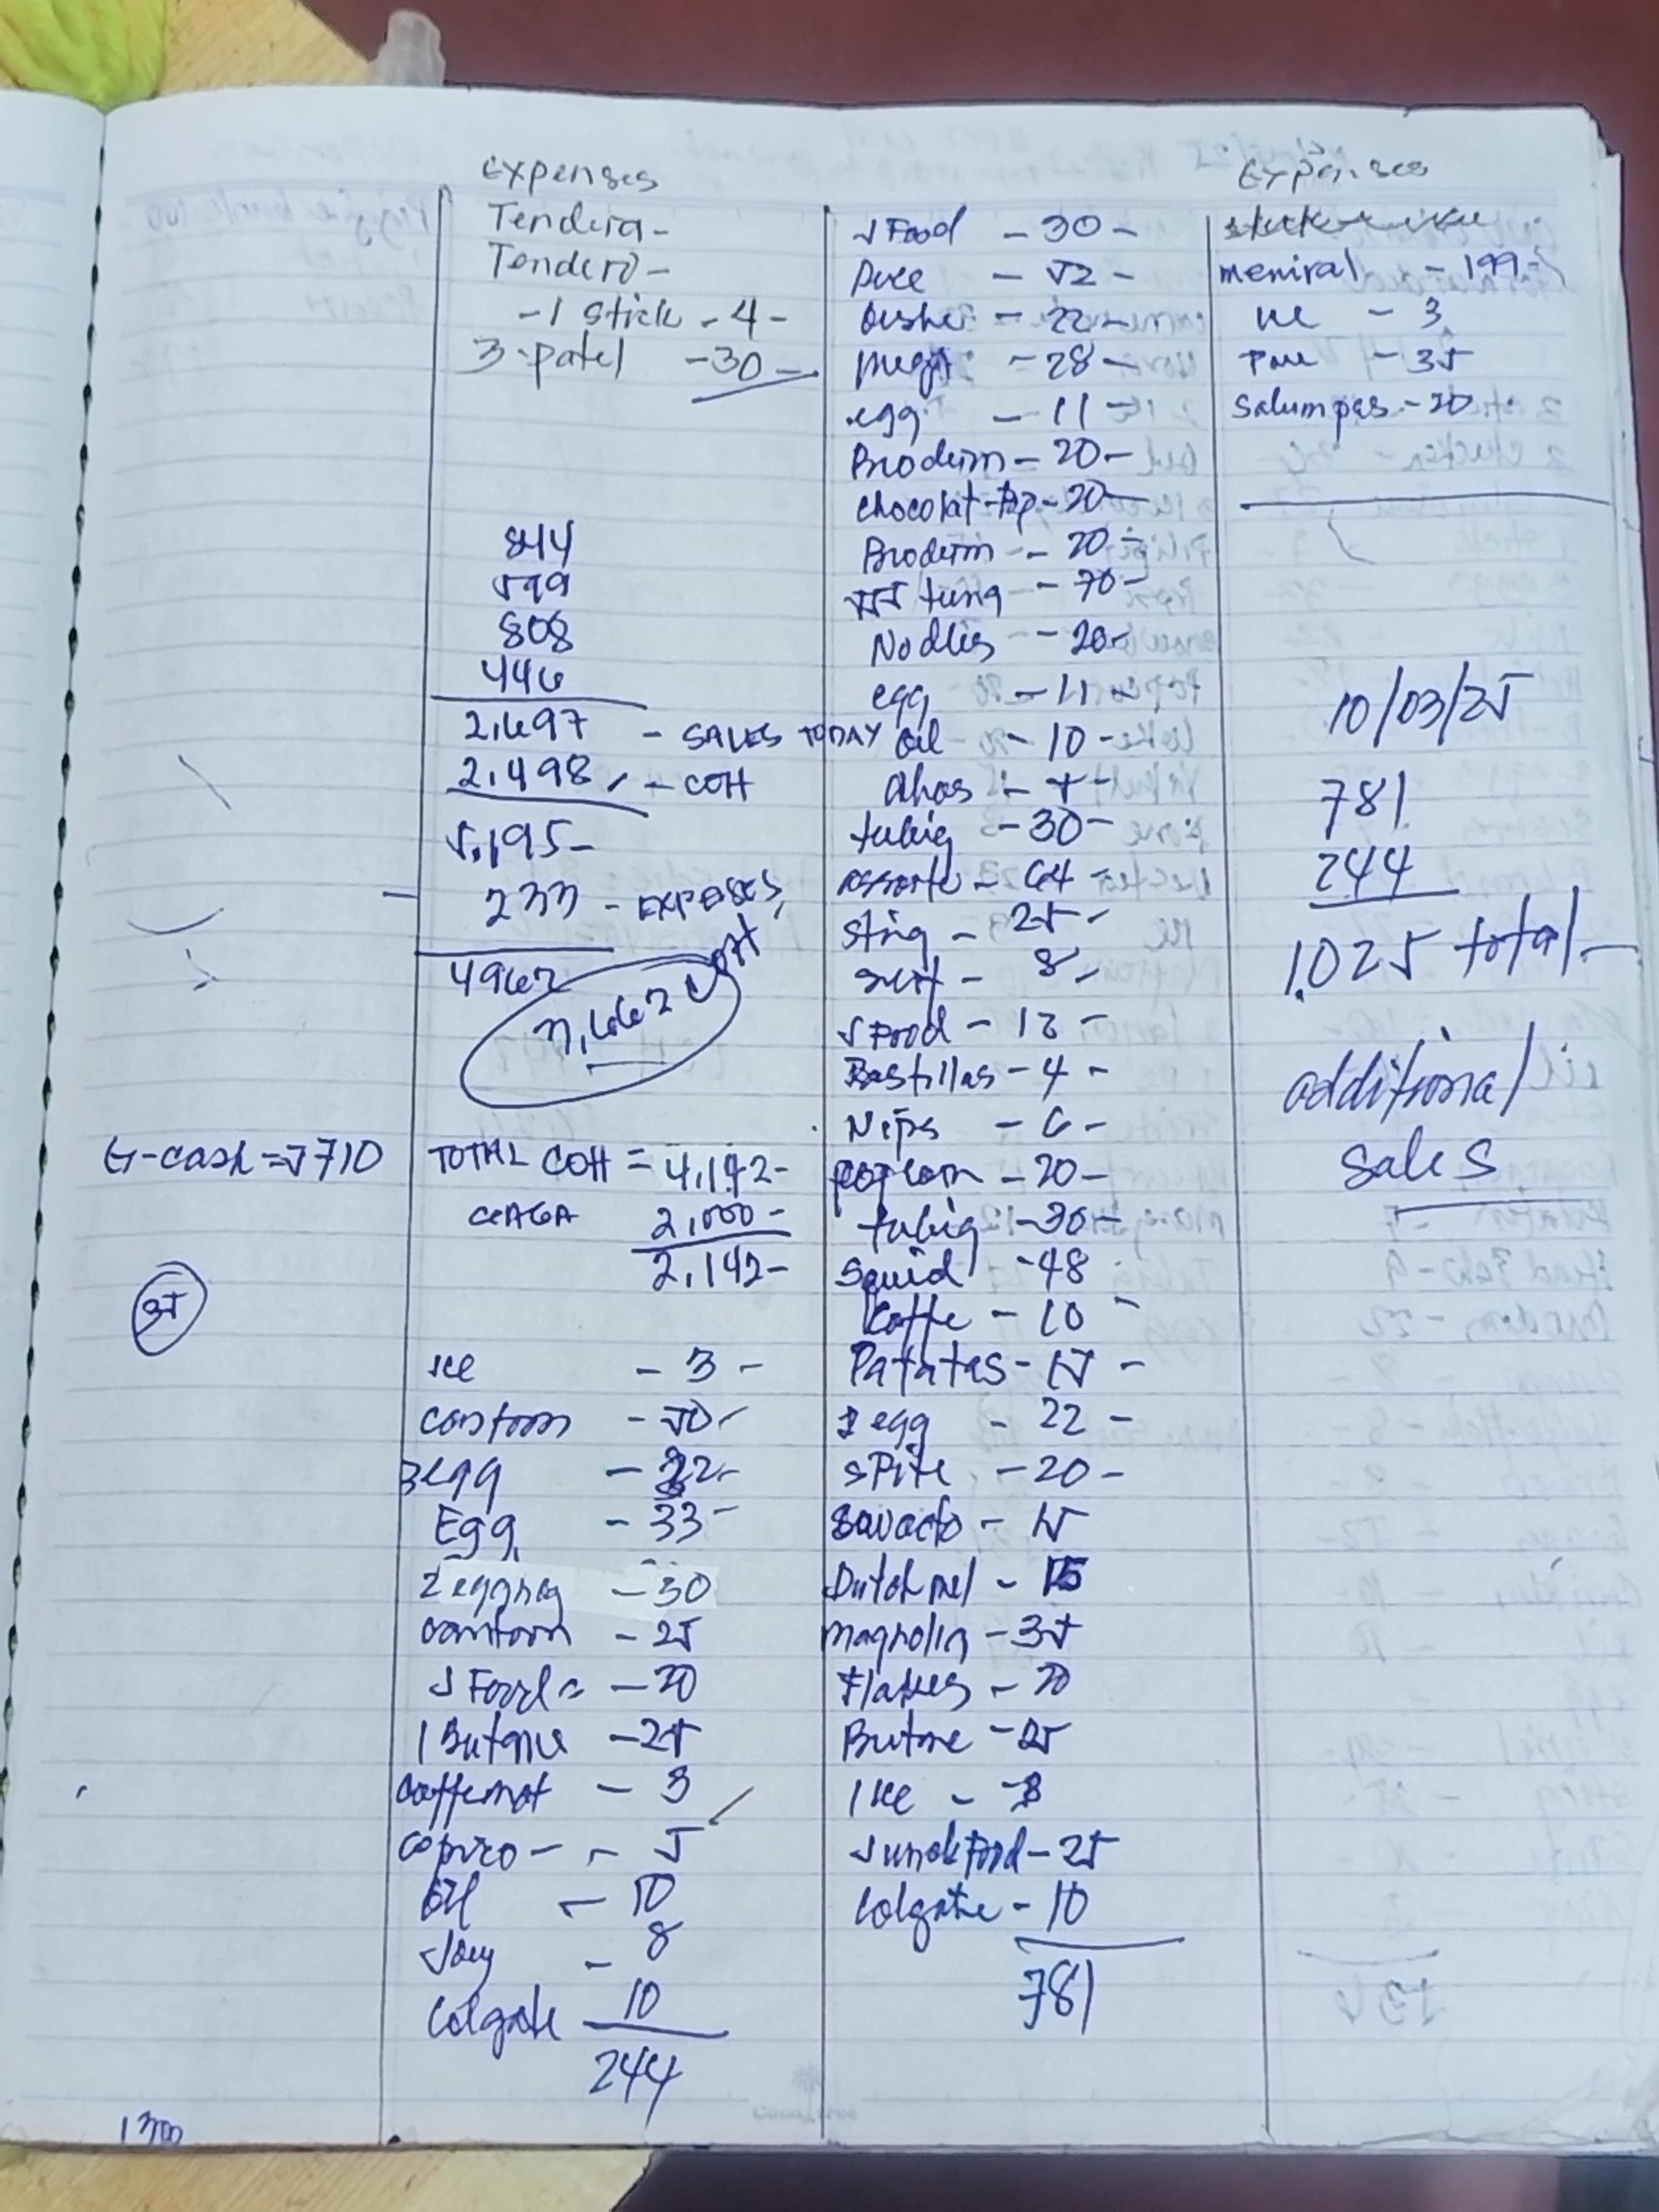 Expenses
Tendera -
Tendero -
- 1 stick - 4 -
3 - patel - 30 -
844
599
808
446
2,697 - SALES TODAY
2,498 - COH
5,195 -
- 233 - EXPESES,
4962
G-cash = 5710
TOTAL COH = 4,142 -
GAGA 2,000 -
2,142 -
35
Ice - 3 -
cantoon - 50 -
3 egg
Egg - 33 -
2 eggneg - 30
cantoon - 25
J Food = - 20
1 Butane - 25
Coffemat - 3
Copico - - 5
Oil - 10
Joy - 8
Colgate 10
244
1300
J Food - 30 -
- 52 -
- 22 -
- 28 -
egg - 11 -
Proderm - 20 -
Chocolat - 20 -
Broderm - - 20 -
555 tuna - 70 -
Nodles - 20 -
egg - 11 -
oil - 10 -
tubig - 30 -
assorte - 64 -
sting - 25 -
surf - 8 -
J Food - 12 -
Bastillas - 4 -
Nips - 6 -
popcorn - 20 -
tubig - 30 -
Squid - 48
Koffe - 10 -
Patatas - 15 -
2 egg - 22 -
sPite - 20 -
- 15
Dutchmel - 15
Magnolia - 35
Flakes - 20
Butane - 25
1 Ice - 3
Junck Food - 25
Colgate - 10
781
Expenses
meniral - 199 -
Ice - 3
- 35
Salumpas - 20
10/03/25
781
244
1,025 total -
additional
sales